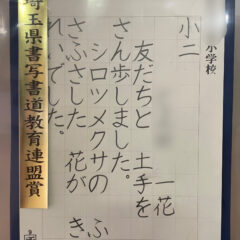 小学校
小二
一花
友だちと 土手を
さん歩しました。
シロツメクサの ふ
さふさした 花が き
れいでした。
埼玉県書写書道教育連盟賞